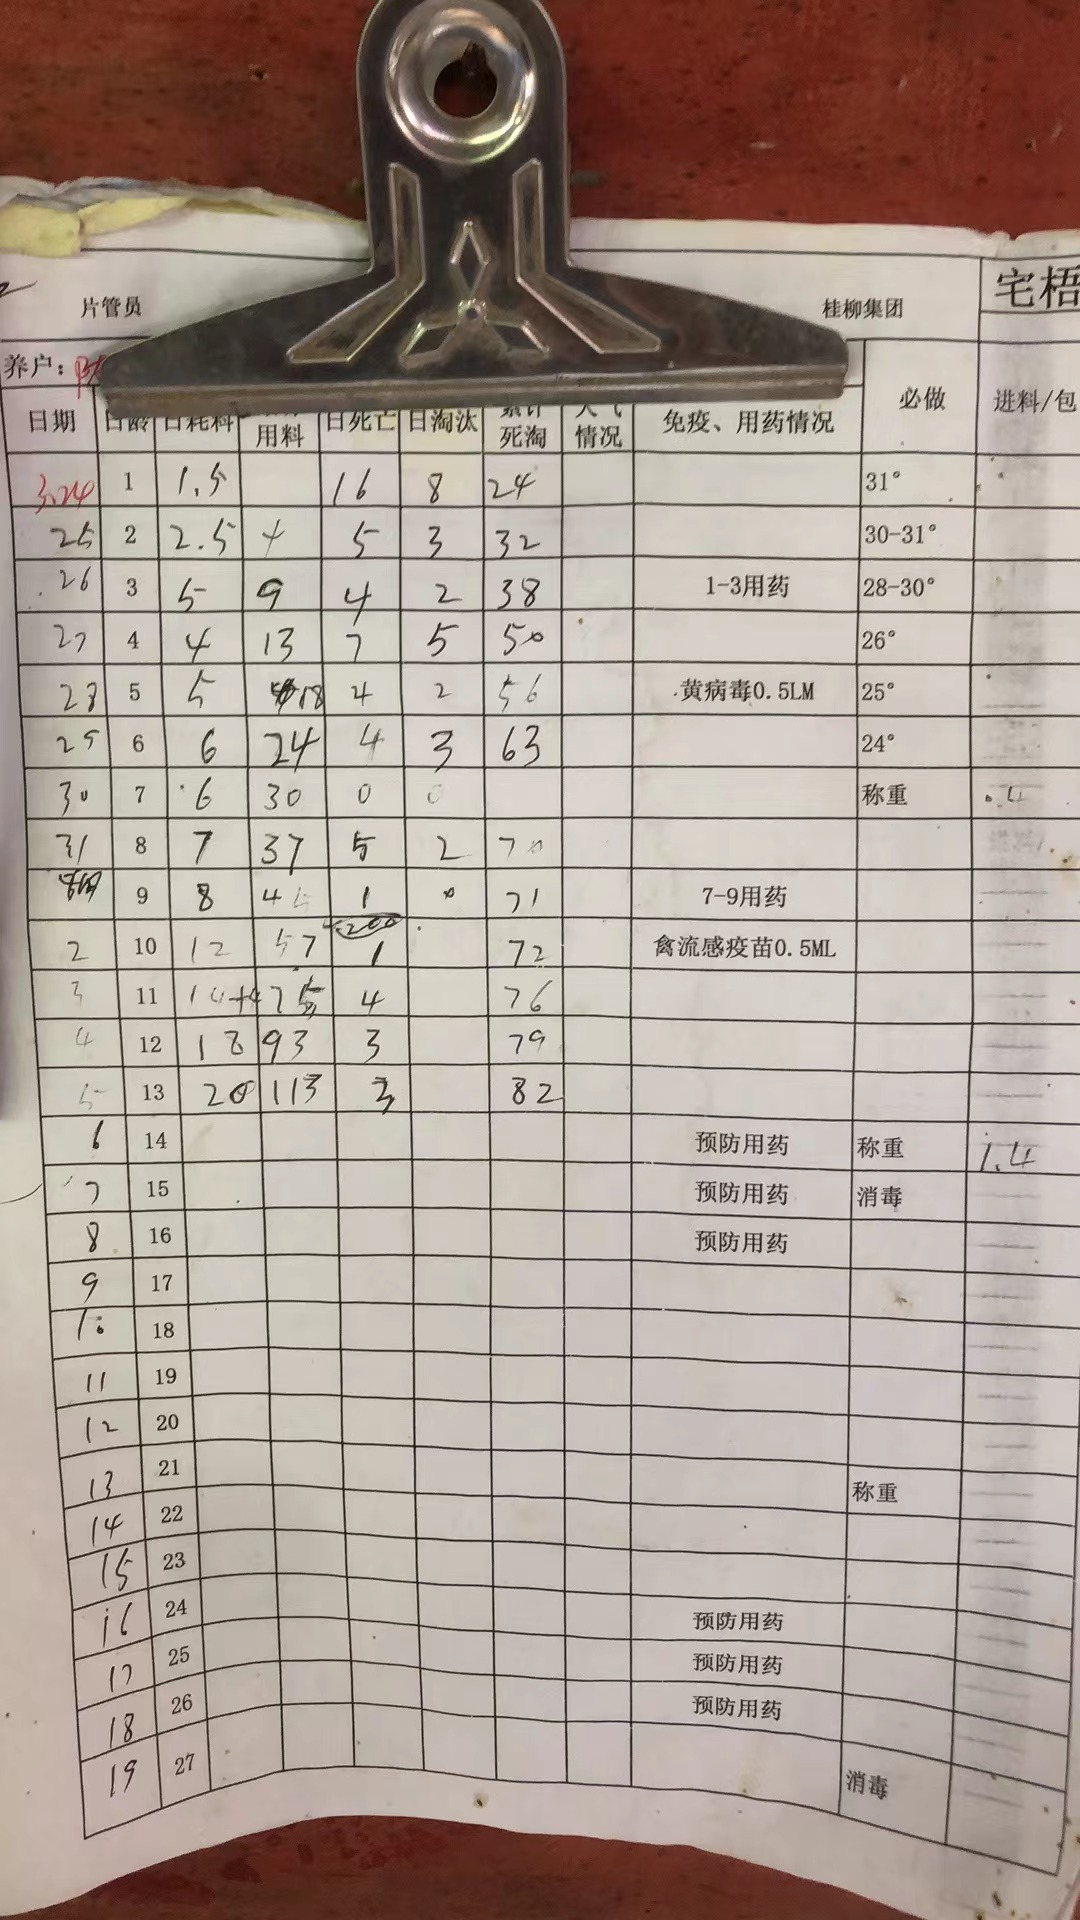 片管员 桂柳集团 宅梧
养户：
日期 日龄 日耗料 用料 日死亡 日淘汰 累计死淘 天气情况 免疫、用药情况 必做 进料/包
3.24 1 1.5 16 8 24 31°
25 2 2.5 4 5 3 32 30-31°
26 3 5 9 4 2 38 1-3用药 28-30°
27 4 4 13 7 5 50 26°
28 5 5 18 4 2 56 黄病毒0.5LM 25°
29 6 6 24 4 3 63 24°
30 7 6 30 0 0 称重
31 8 7 37 5 2 70
9 8 45 1 0 71 7-9用药
200
2 10 12 57 1 72 禽流感疫苗0.5ML
3 11 14+4 75 4 76
4 12 18 93 3 79
5 13 20 113 3 82
6 14 预防用药 称重 1.4
7 15 预防用药 消毒
8 16 预防用药
9 17
10 18
11 19
12 20
13 21 称重
14 22
15 23
16 24 预防用药
17 25 预防用药
18 26 预防用药
19 27 消毒